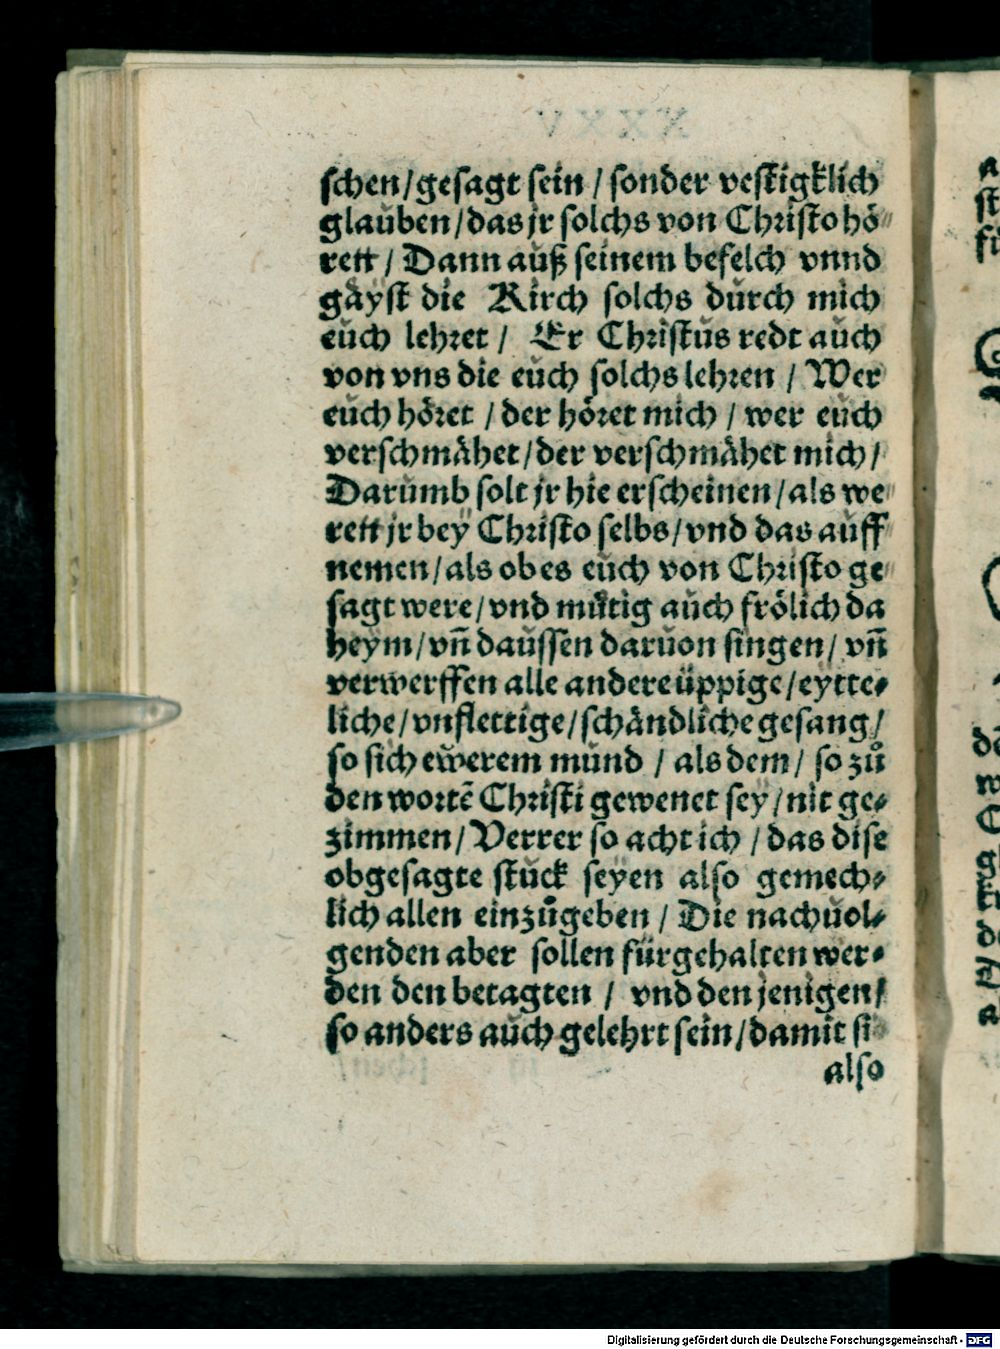 schen / gesagt sein / sonder vestigklich
glauben / das jr solchs von Christo hö⸗
rett / Dann auß seinem befelch vnnd
gäyst die Kirch solchs durch mich
euch lehret / Er Christus redt auch
von vns die euch solchs lehren / Wer
euch höret / der höret mich / wer euch
verschmähet / der verschmähet mich /
Darumb solt jr hie erscheinen / als we⸗
rett jr bey Christo selbs / vnd das auff⸗
nemen / als ob es euch von Christo ge⸗
sagt were / vnd můtig auch frölich da
heym / vñ daussen daruon singen / vñ
verwerffen alle andere üppige / eytte⸗
liche / vnflettige / schändliche gesang /
so sich ewerem mund / als dem / so zů
den wortē Christi gewenet sey / nit ge⸗
zimmen / Verrer so acht ich / das dise
obgesagte stuck seyen also gemech⸗
lich allen einzůgeben / Die nachuol⸗
genden aber sollen fürgehalten wer⸗
den den betagten / vnd den jenigen /
so anders auch gelehrt sein / damit si
also
Digitalisierung gefördert durch die Deutsche Forschungsgemeinschaft - DFG